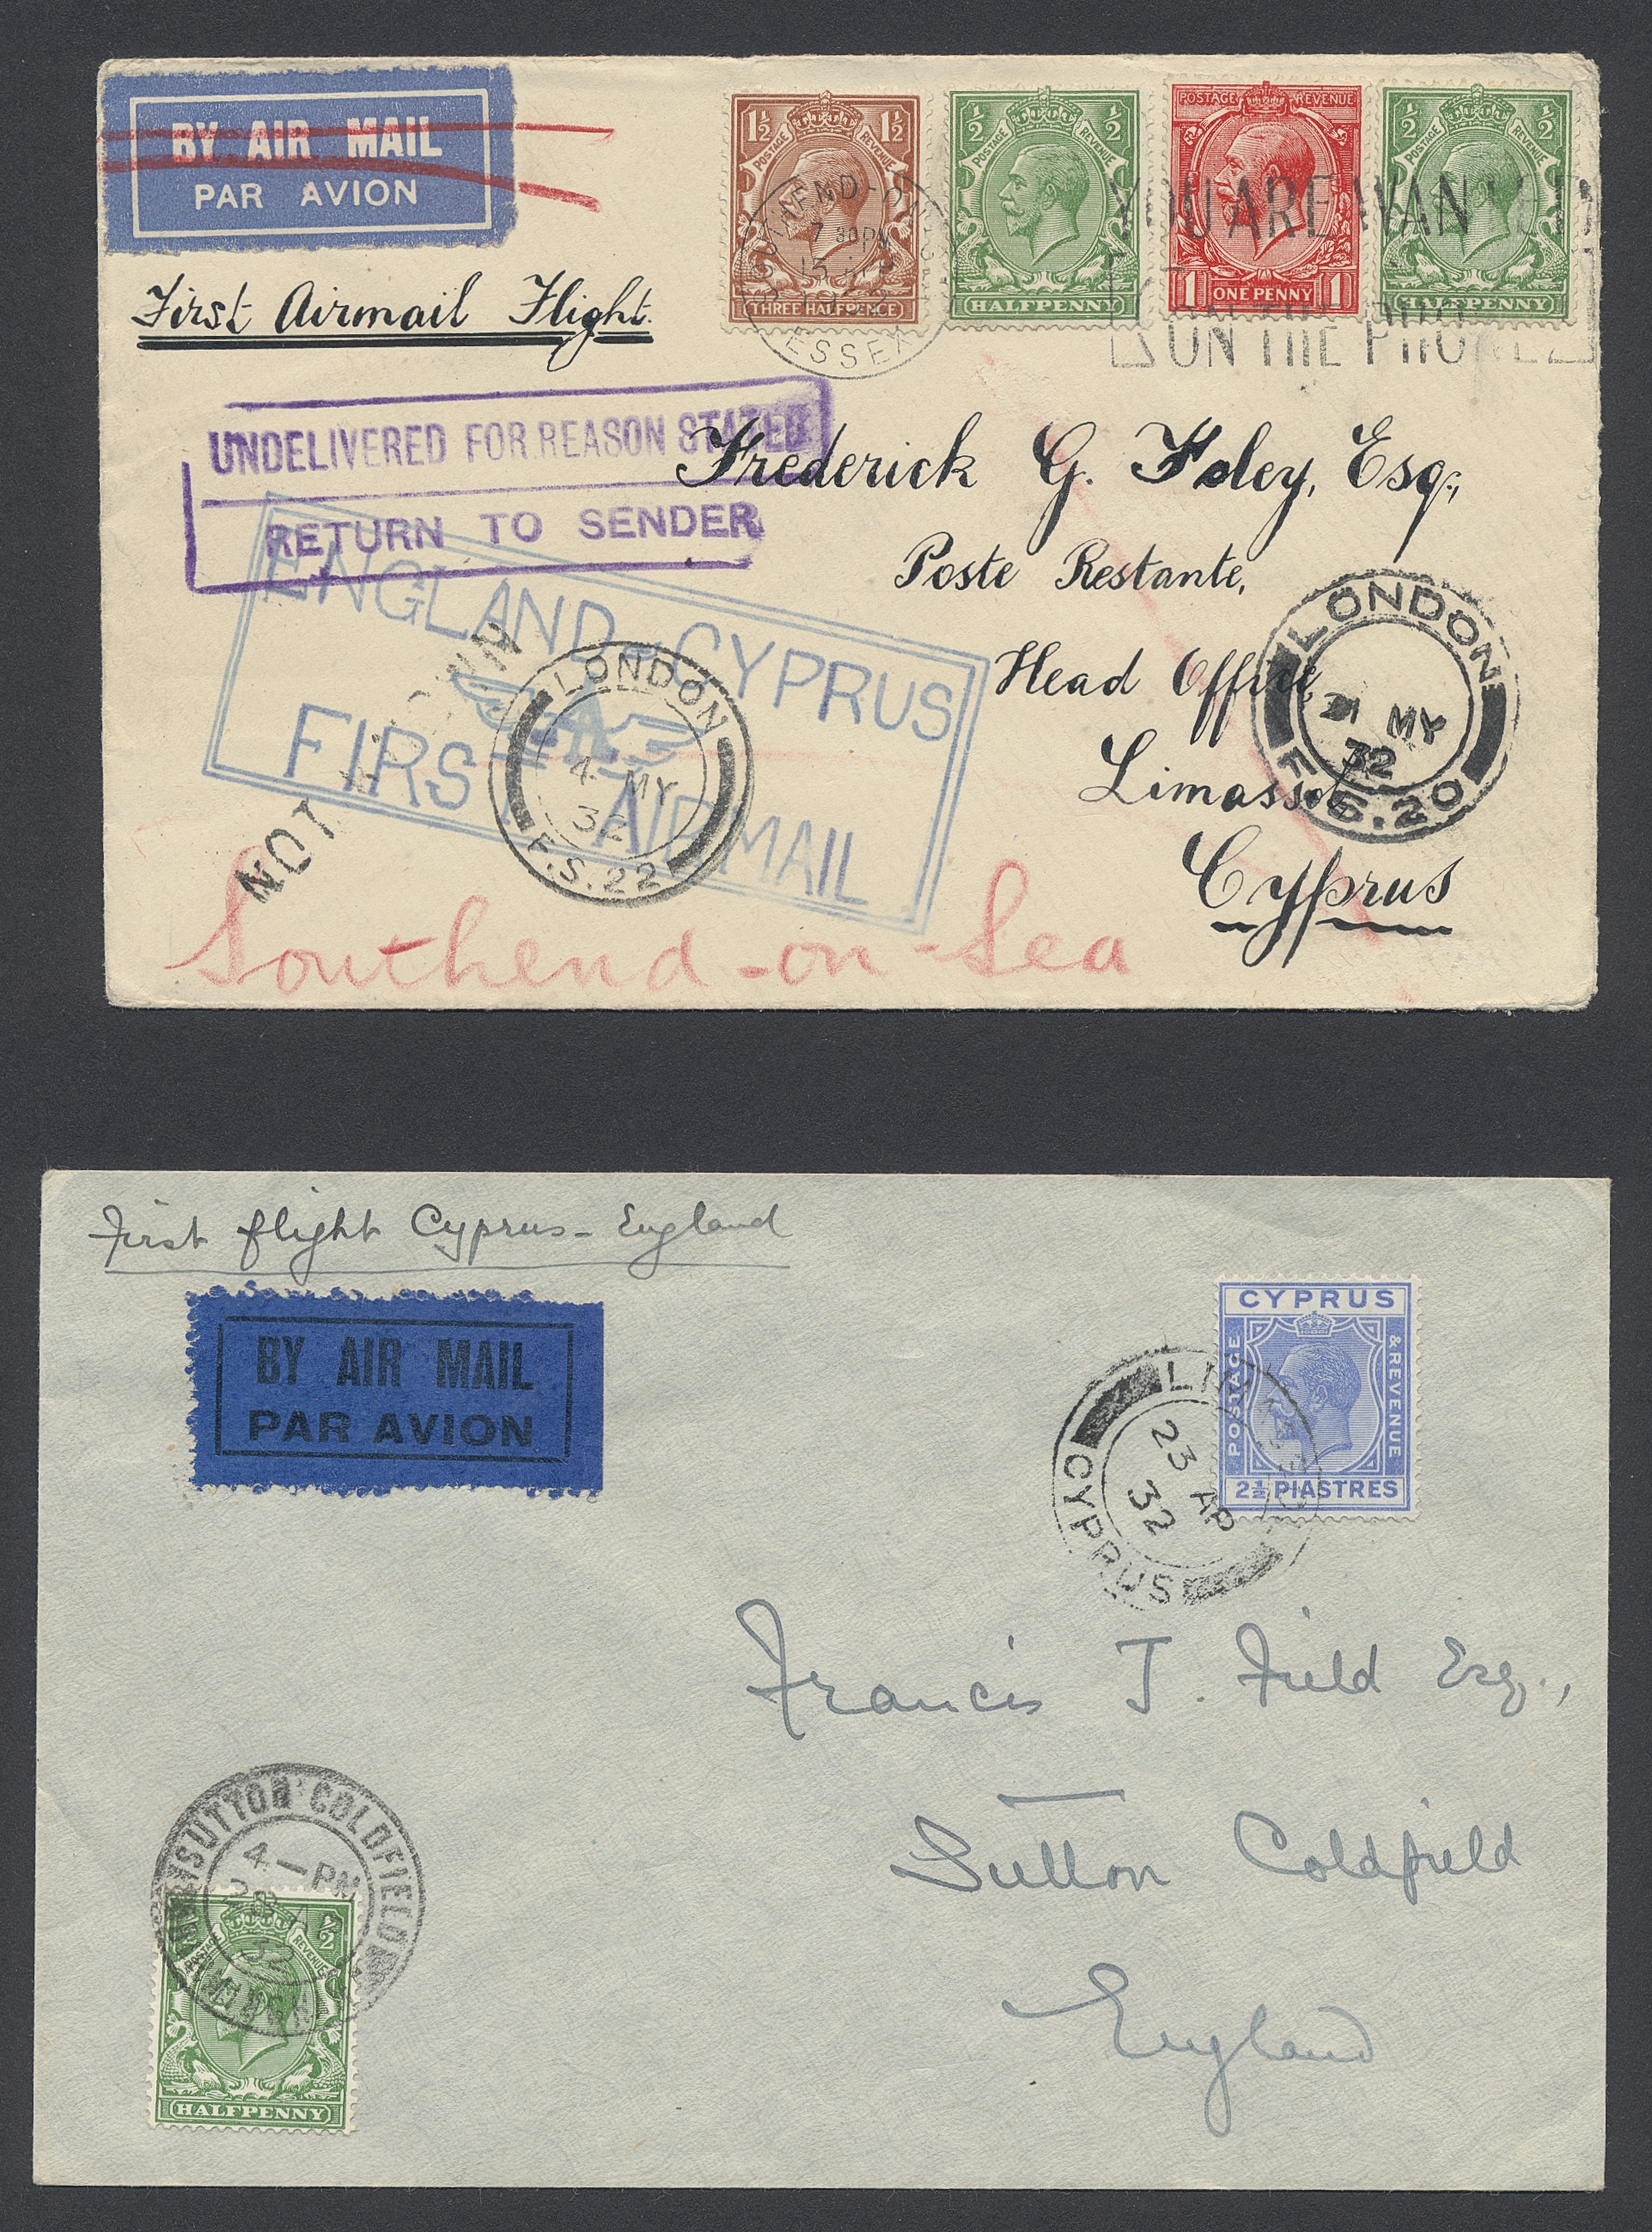 BY AIR MAIL
PAR AVION
1½ 1½
POSTAGE REVENUE
THREE HALFPENCE
½ ½
POSTAGE REVENUE
HALFPENNY
POSTAGE REVENUE
1 ONE PENNY 1
½ ½
POSTAGE REVENUE
HALFPENNY
SOUTHEND-ON-SEA
7 30PM
ESSEX
YOU ARE WANTED
ON THE PHONE
First Airmail Flight.
UNDELIVERED FOR REASON STATED
RETURN TO SENDER
ENGLAND-CYPRUS
FIRST AIRMAIL
NOT KNOWN
Frederick G. Foley, Esq.,
Poste Restante,
Head Office,
Limassol
Cyprus
LONDON
4 MY
32
F.S.22
LONDON
MY
32
F.S.20
Southend-on-Sea
First flight Cyprus-England
BY AIR MAIL
PAR AVION
CYPRUS
POSTAGE & REVENUE
2½ PIASTRES
LIMASSOL
23 AP
32
CYPRUS
Francis J. Field Esq.,
Sutton Coldfield
England
SUTTON COLDFIELD
4-PM
28 AP
32
½
POSTAGE REVENUE
HALFPENNY